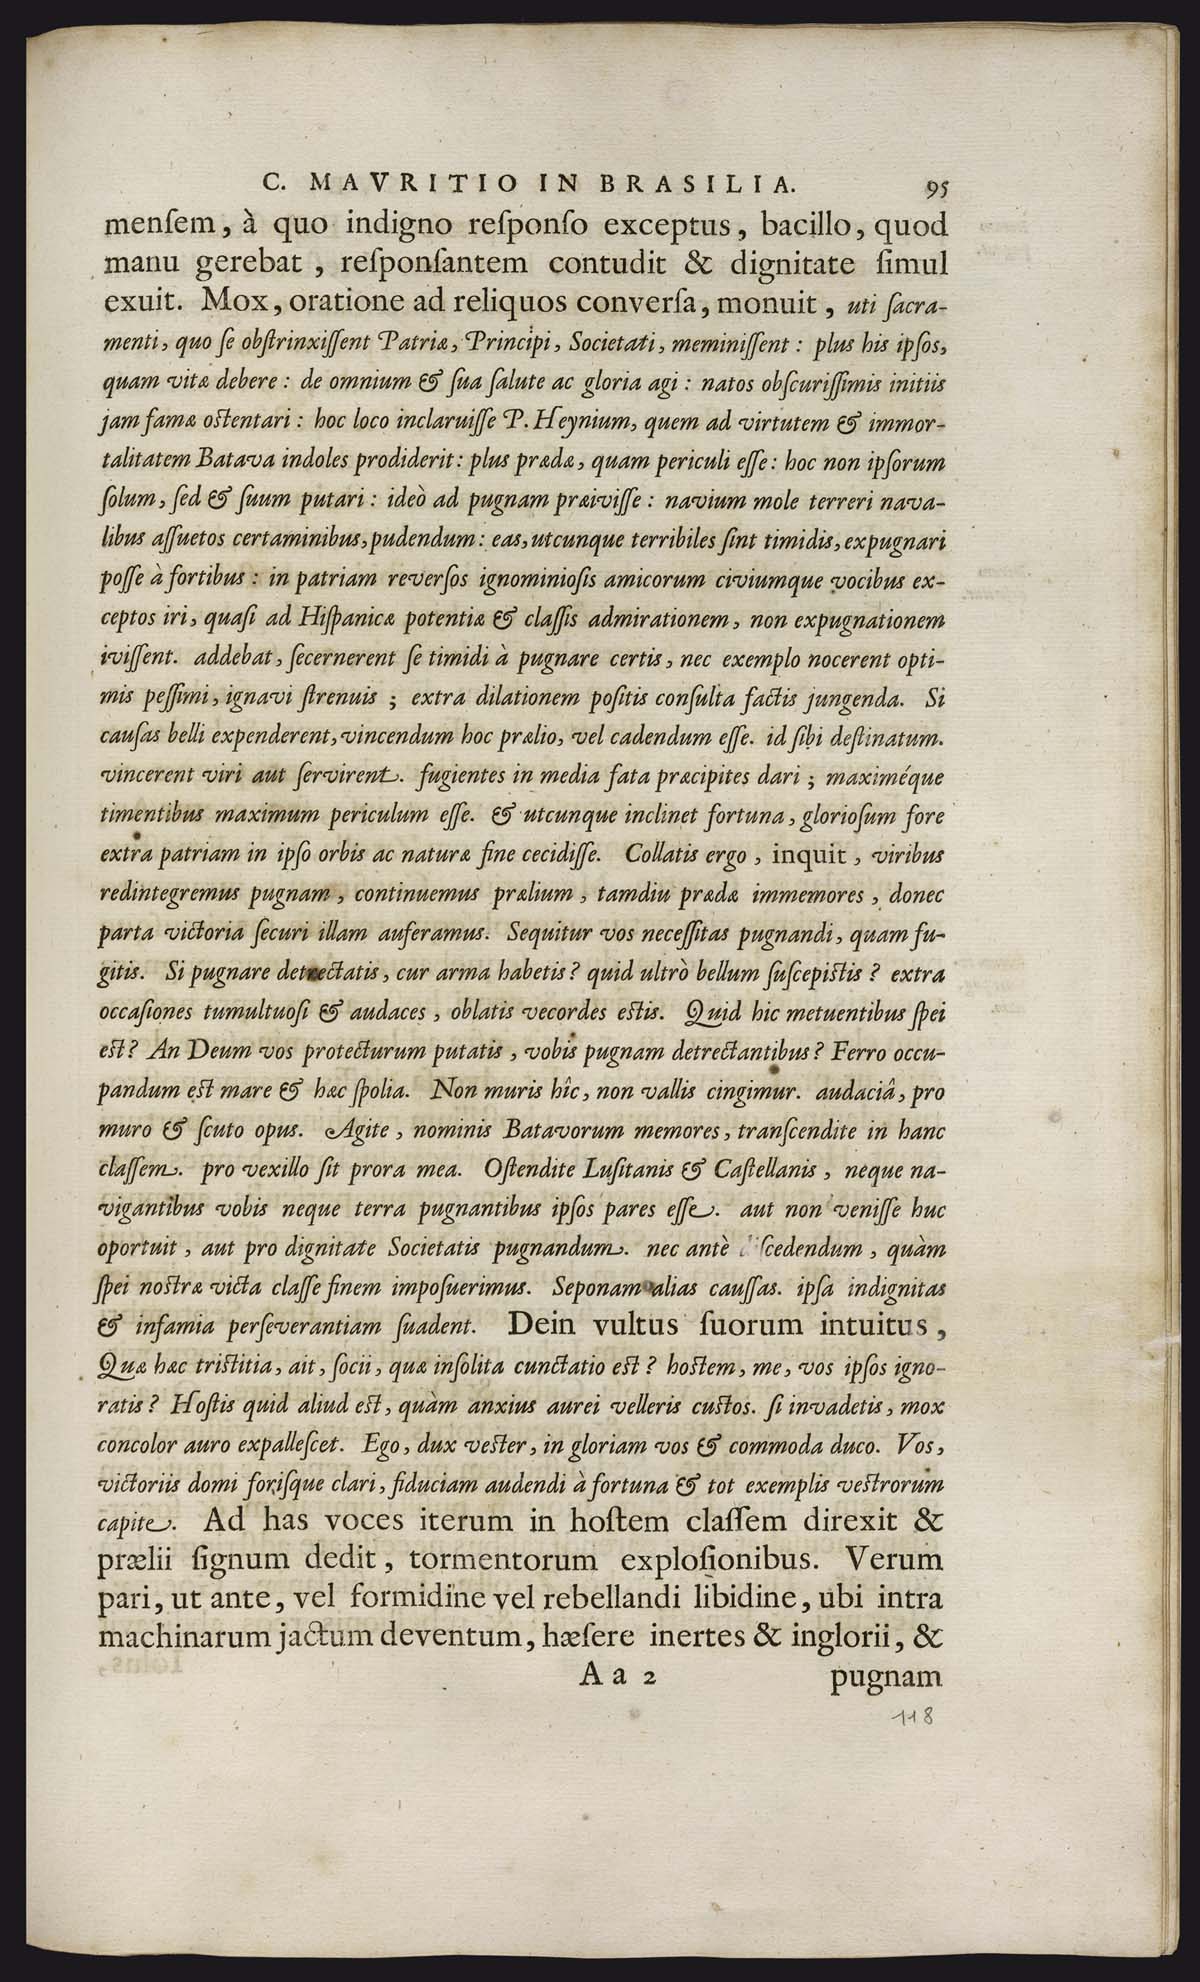 C. MAVRITIO IN BRASILIA. 95
menſem, à quo indigno reſponſo exceptus, bacillo, quod
manu gerebat, reſponſantem contudit & dignitate ſimul
exuit. Mox, oratione ad reliquos converſa, monuit, uti ſacra-
menti, quo ſe obſtrinxiſſent Patriæ, Principi, Societati, meminiſſent: plus his ipſos,
quam vitæ debere: de omnium & ſua ſalute ac gloria agi: natos obſcuriſſimis initiis
jam famæ oſtentari: hoc loco inclaruiſſe P. Heynium, quem ad virtutem & immor-
talitatem Batava indoles prodiderit: plus prædæ, quam periculi eſſe: hoc non ipſorum
ſolum, ſed & ſuum putari: ideò ad pugnam præiviſſe: navium mole terreri nava-
libus aſſuetos certaminibus, pudendum: eas, utcunque terribiles ſint timidis, expugnari
poſſe à fortibus: in patriam reverſos ignominioſis amicorum civiumque vocibus ex-
ceptos iri, quaſi ad Hiſpanicæ potentiæ & claſſis admirationem, non expugnationem
iviſſent. addebat, ſecernerent ſe timidi à pugnare certis, nec exemplo nocerent opti-
mis peſſimi, ignavi ſtrenuis; extra dilationem poſitis conſulta factis jungenda. Si
cauſas belli expenderent, vincendum hoc prælio, vel cadendum eſſe. id ſibi deſtinatum.
vincerent viri aut ſervirent. fugientes in media fata præcipites dari; maximéque
timentibus maximum periculum eſſe. & utcunque inclinet fortuna, glorioſum fore
extra patriam in ipſo orbis ac naturæ fine cecidiſſe. Collatis ergo, inquit, viribus
redintegremus pugnam, continuemus prælium, tamdiu prædæ immemores, donec
parta victoria ſecuri illam auferamus. Sequitur vos neceſſitas pugnandi, quam fu-
gitis. Si pugnare detrectatis, cur arma habetis? quid ultrò bellum ſuſcepiſtis? extra
occaſiones tumultuoſi & audaces, oblatis vecordes eſtis. Quid hic metuentibus ſpei
eſt? An Deum vos protecturum putatis, vobis pugnam detrectantibus? Ferro occu-
pandum eſt mare & hæc ſpolia. Non muris hîc, non vallis cingimur. audaciâ, pro
muro & ſcuto opus. Agite, nominis Batavorum memores, tranſcendite in hanc
claſſem. pro vexillo ſit prora mea. Oſtendite Luſitanis & Caſtellanis, neque na-
vigantibus vobis neque terra pugnantibus ipſos pares eſſe. aut non veniſſe huc
oportuit, aut pro dignitate Societatis pugnandum. nec antè diſcedendum, quàm
ſpei noſtræ victa claſſe finem impoſuerimus. Seponam alias cauſſas. ipſa indignitas
& infamia perſeverantiam ſuadent. Dein vultus ſuorum intuitus,
Quæ hæc triſtitia, ait, ſocii, quæ inſolita cunctatio eſt? hoſtem, me, vos ipſos igno-
ratis? Hoſtis quid aliud eſt, quàm anxius aurei velleris cuſtos. ſi invadetis, mox
concolor auro expalleſcet. Ego, dux veſter, in gloriam vos & commoda duco. Vos,
victoriis domi foriſque clari, fiduciam audendi à fortuna & tot exemplis veſtrorum
capite. Ad has voces iterum in hoſtem claſſem direxit &
prælii ſignum dedit, tormentorum exploſionibus. Verum
pari, ut ante, vel formidine vel rebellandi libidine, ubi intra
machinarum jactum deventum, hæſere inertes & inglorii, &
A a 2 pugnam
118